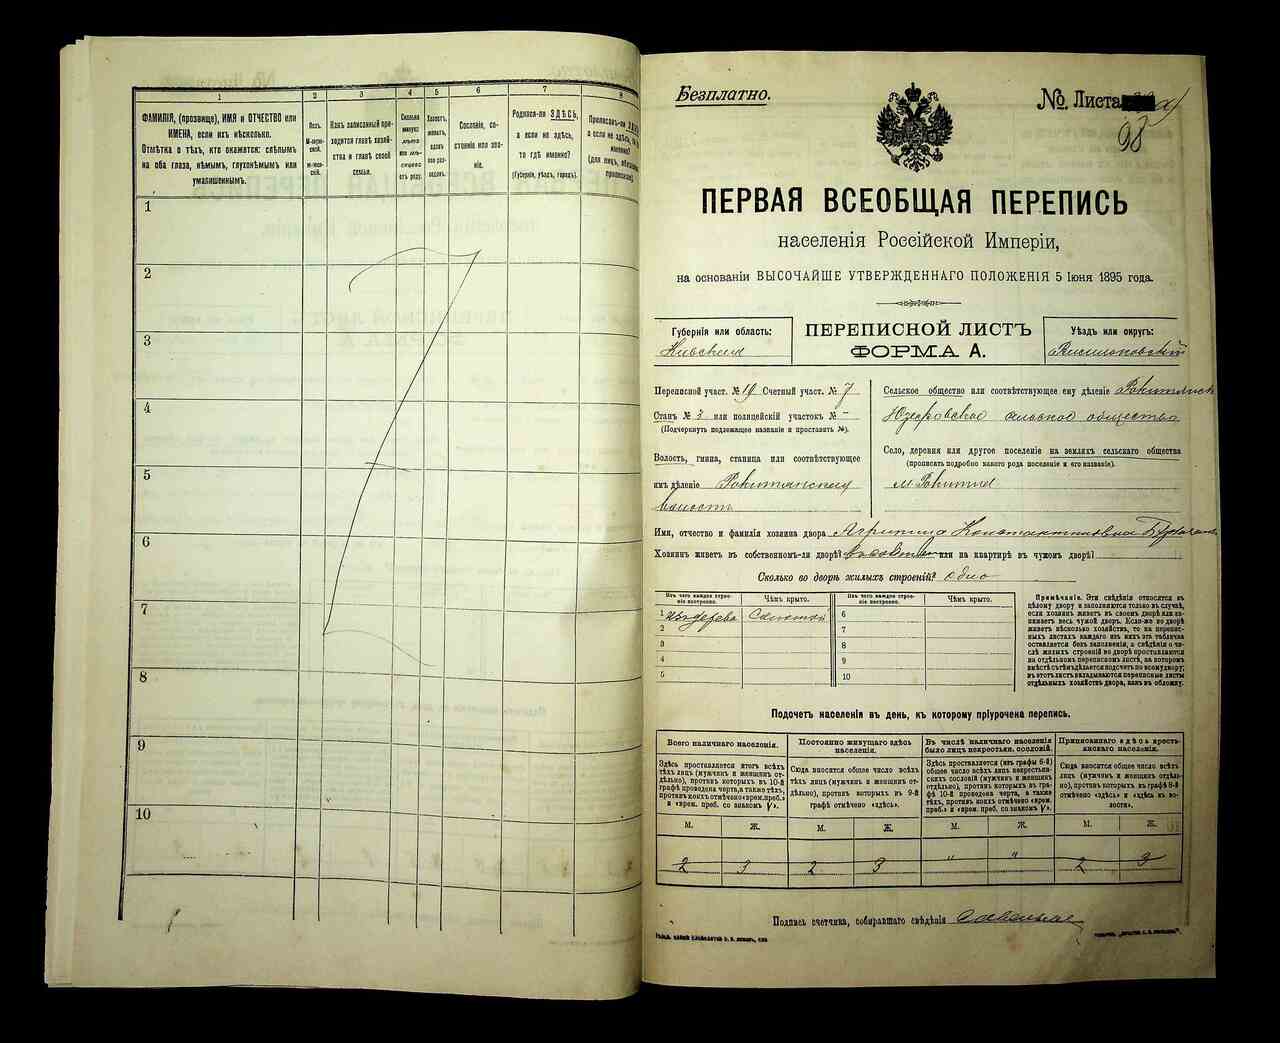 1
2
3
4
5
6
7
8
ФАМИЛІЯ, (прозвище), ИМЯ и ОТЧЕСТВО или
ИМЕНА, если ихъ нѣсколько.
Отмѣтка о тѣхъ, кто окажется: слѣпымъ
на оба глаза, нѣмымъ, глухонѣмымъ или
умалишеннымъ.
Полъ.
М-мужской.
Ж-женскій.
Какъ записанный приходится главѣ хозяйства и главѣ своей семьи.
Сколько минуло лѣтъ или мѣсяцевъ отъ роду.
Сословіе, состояніе или званіе.
Родился-ли ЗДѢСЬ,
а если не здѣсь,
то гдѣ именно?
(Губернія, уѣздъ, городъ).
1
2
3
4
5
6
7
8
9
10
Безплатно.
№ Листа
98
ПЕРВАЯ ВСЕОБЩАЯ ПЕРЕПИСЬ
населенія Россійской Имперіи,
на основаніи ВЫСОЧАЙШЕ УТВЕРЖДЕННАГО ПОЛОЖЕНІЯ 5 Іюня 1895 года.
Губернія или область:
ПЕРЕПИСНОЙ ЛИСТЪ
ФОРМА А.
Уѣздъ или округъ:
Кіевская
Переписной участ. № 19 Счетный участ. № 7
Станъ № 3 или полицейскій участокъ № -
(Подчеркнуть подлежащее названіе и проставить №).
Волость, гмина, станица или соотвѣтствующее
имъ дѣленіе Рокитянская
волость
Сельское общество или соотвѣтствующее ему дѣленіе
сельское общество
Село, деревня или другое поселеніе на земляхъ сельскаго общества
(прописать подробно какого рода поселеніе и его названіе).
м. Рокитна
Имя, отчество и фамилія хозяина двора Агрипина Константиновна
Хозяинъ живетъ въ собственномъ-ли дворѣ? или на квартирѣ въ чужомъ дворѣ?
Сколько во дворѣ жилыхъ строеній? Одно
Изъ чего каждое строеніе построено.
Чѣмъ крыто.
Изъ чего каждое строеніе построено.
Чѣмъ крыто.
1 изъ дерева Соломой
2
3
4
5
6
7
8
9
10
Примѣчаніе. Эти свѣдѣнія относятся къ
цѣлому двору и заполняются только въ случаѣ,
если хозяинъ живетъ въ своемъ дворѣ или занимаетъ весь чужой дворъ. Если-же во дворѣ
живетъ нѣсколько хозяйствъ, то на переписныхъ листахъ каждаго изъ нихъ эта табличка
оставляется безъ заполненія, а свѣдѣнія о числѣ жилыхъ строеній во дворѣ проставляются
на отдѣльномъ переписномъ листѣ, на которомъ
вмѣстѣ съ тѣмъ дѣлается подсчетъ по всему двору;
въ этотъ листъ вкладываются переписные листы
отдѣльныхъ хозяйствъ двора, какъ въ обложку.
Подсчетъ населенія въ день, къ которому пріурочена перепись.
Всего наличнаго населенія.
Постоянно живущаго здѣсь населенія.
Въ числѣ наличнаго населенія было лицъ некрестьян. сословій.
Приписаннаго здѣсь крестьянскаго населенія.
Здѣсь проставляется итогъ всѣхъ
тѣхъ лицъ (мужчинъ и женщинъ отдѣльно), противъ которыхъ въ 10-й
графѣ проведена черта, а также тѣхъ,
противъ коихъ отмѣчено «врем. преб.»
и «врем. преб. со знакомъ V».
Сюда вносится общее число всѣхъ
тѣхъ лицъ (мужчинъ и женщинъ отдѣльно), противъ которыхъ въ 9-й
графѣ отмѣчено «здѣсь».
Здѣсь проставляется (изъ графы 6-й)
общее число всѣхъ лицъ некрестьянскихъ сословій (мужчинъ и женщинъ
отдѣльно), противъ которыхъ въ
графѣ 10-й проведена черта, а также
тѣхъ, противъ коихъ отмѣчено «врем.
преб.» и «врем. преб. со знакомъ V».
Сюда вносится общее число всѣхъ
лицъ (мужчинъ и женщинъ отдѣльно), противъ которыхъ въ графѣ 8-й
отмѣчено «здѣсь» и «здѣсь въ волости».
М. Ж. М. Ж. М. Ж. М. Ж.
2 3 2 3 " " 2 3
Подпись счетчика, собиравшаго свѣдѣнія